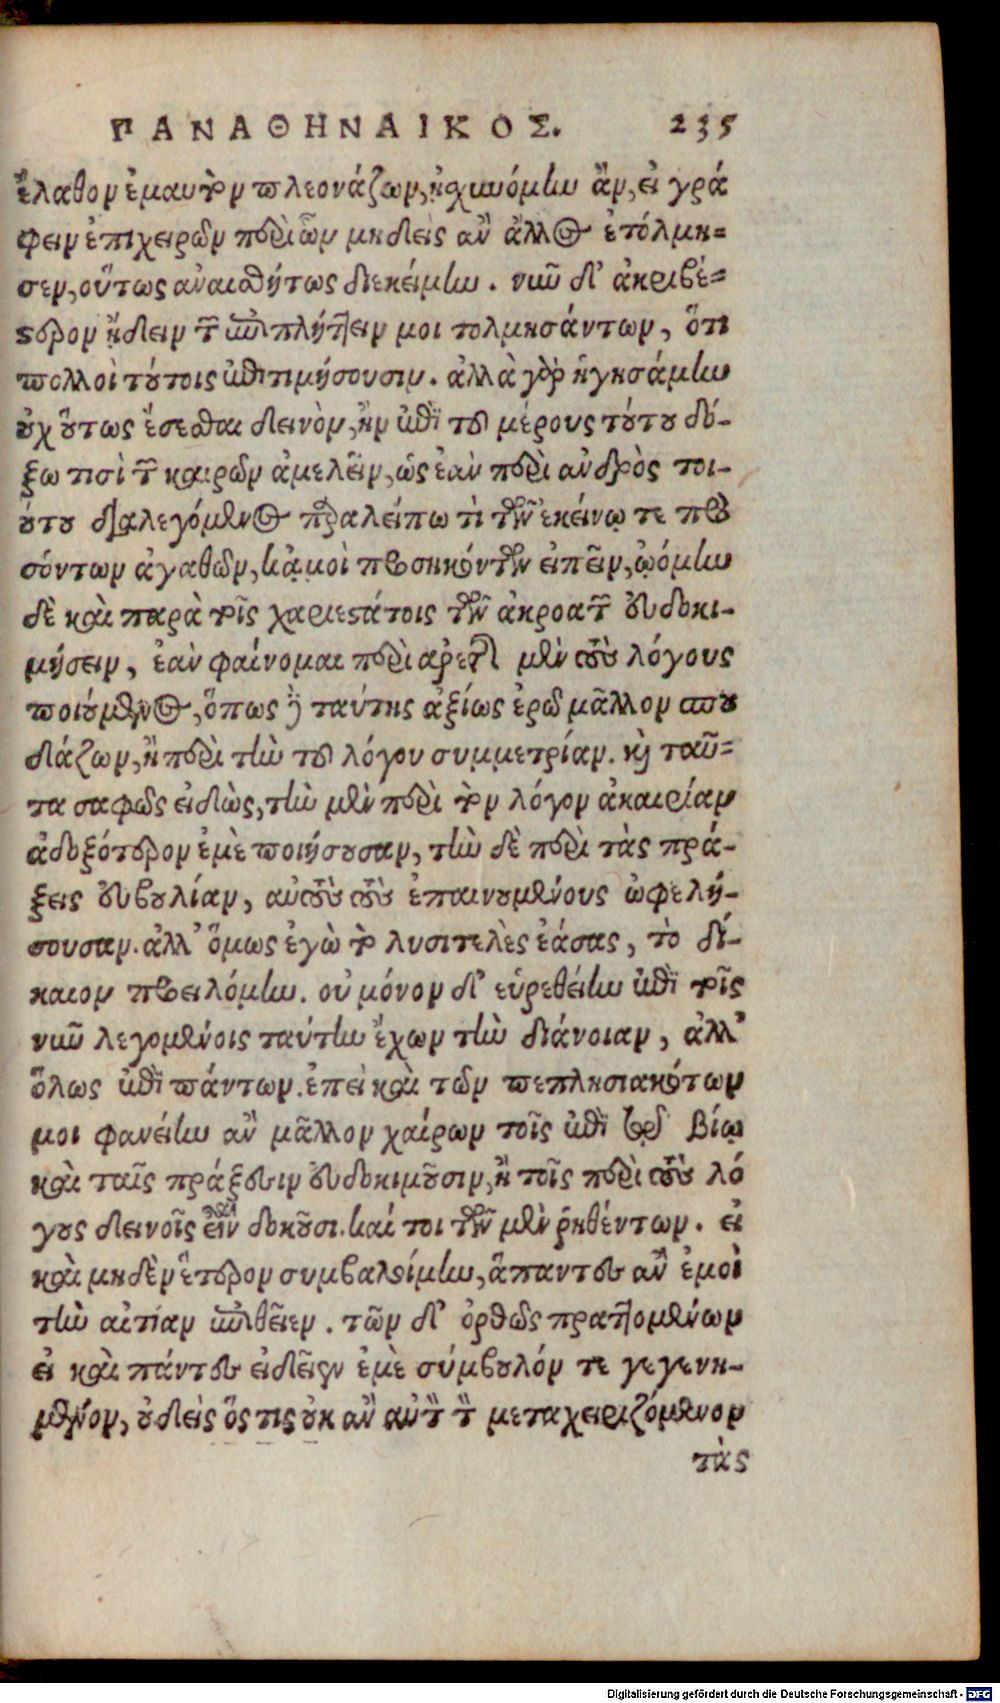 ΠΑΝΑΘΗΝΑΙΚΟΣ. 235
ἔλαθον ἐμαυτὸν πλεονάζων, ᾐσχυνόμην ἂν, εἰ γρά
φειν ἐπιχειρῶν περὶ ὧν μηδεὶς ἂν ἄλλος ἐτόλμη=
σεν, οὕτως ἀναισθήτως διεκείμην. νῦν δ' ἀκριβέ=
στερον ᾔδειν τῶν ἐπιπλήττειν μοι τολμησάντων, ὅτι
πολλοὶ τούτοις ἐπιτιμήσουσιν. ἀλλὰ γὰρ ἡγησάμην
οὐχ οὕτως ἔσεσθαι δεινὸν, ἢν ἐπὶ τοῦ μέρους τούτου δό-
ξω τισὶ τῶν καιρῶν ἀμελεῖν, ὡς ἐὰν περὶ ἀνδρὸς τοι-
ούτου διαλεγόμενος παραλείπω τὶ τῶν ἐκείνῳ τε προ
σόντων ἀγαθῶν, κἀμοὶ προσηκόντων εἰπεῖν, ᾠόμην
δὲ καὶ παρὰ τοῖς χαριεστάτοις τῶν ἀκροατῶν εὐδοκι-
μήσειν, ἐὰν φαίνομαι περὶ ἀρετῆς μὲν τοὺς λόγους
ποιούμενος, ὅπως δὲ ταύτης ἀξίως ἐρῶ μᾶλλον σπου
δάζων, ἢ περὶ τὴν τοῦ λόγου συμμετρίαν. καὶ ταῦ=
τα σαφῶς εἰδὼς, τὴν μὲν περὶ τὸν λόγον ἀκαιρίαν
ἀδοξότερον ἐμὲ ποιήσουσαν, τὴν δὲ περὶ τὰς πρά-
ξεις εὐβουλίαν, αὐτοὺς τοὺς ἐπαινουμένους ὠφελή-
σουσαν. ἀλλ' ὅμως ἐγὼ τὸ λυσιτελὲς ἐάσας, τὸ δί-
καιον προειλόμην. οὐ μόνον δ' εὑρεθείην ἐπὶ τοῖς
νῦν λεγομένοις ταύτην ἔχων τὴν διάνοιαν, ἀλλ'
ὅλως ἐπὶ πάντων. ἐπεὶ καὶ τῶν πεπλησιακότων
μοι φανείην ἂν μᾶλλον χαίρων τοῖς ἐπὶ τῷ βίῳ
καὶ ταῖς πράξεσιν εὐδοκιμοῦσιν, ἢ τοῖς περὶ τοὺς λό
γους δεινοῖς εἶναι δοκοῦσι. καί τοι τῶν μὲν ῥηθέντων. εἰ
καὶ μηδὲν ἕτερον συμβαλοίμην, ἅπαντες ἂν ἐμοὶ
τὴν αἰτίαν ἐπιθεῖεν. τῶν δ' ὀρθῶς πραττομένων
εἰ καὶ πάντες εἰδεῖεν ἐμὲ σύμβουλόν τε γεγενη-
μένον, οὐδεὶς ὅς τις οὐκ ἂν αὐτὸν τὸν μεταχειριζόμενον
τὰς
Digitalisierung gefördert durch die Deutsche Forschungsgemeinschaft - DFG